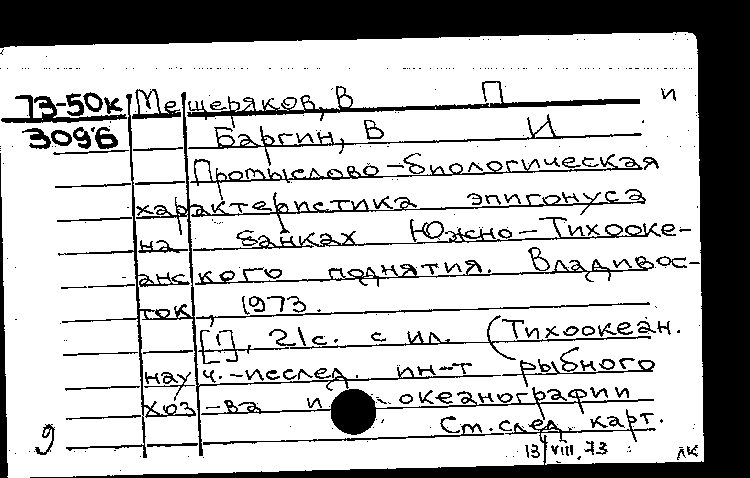 73-50к Мещеряков, В П и
3096 Баргин, В И
Промыслово-биологическая
характеристика эпигонуса
на банках Южно-Тихооке-
анского поднятия. Владивос-
ток, 1973.
[1], 21с. с ил. (Тихоокеан.
науч.-исслед. ин-т рыбного
хоз-ва и океанографии
См. след. карт.
9
13/VIII.73 ЛК